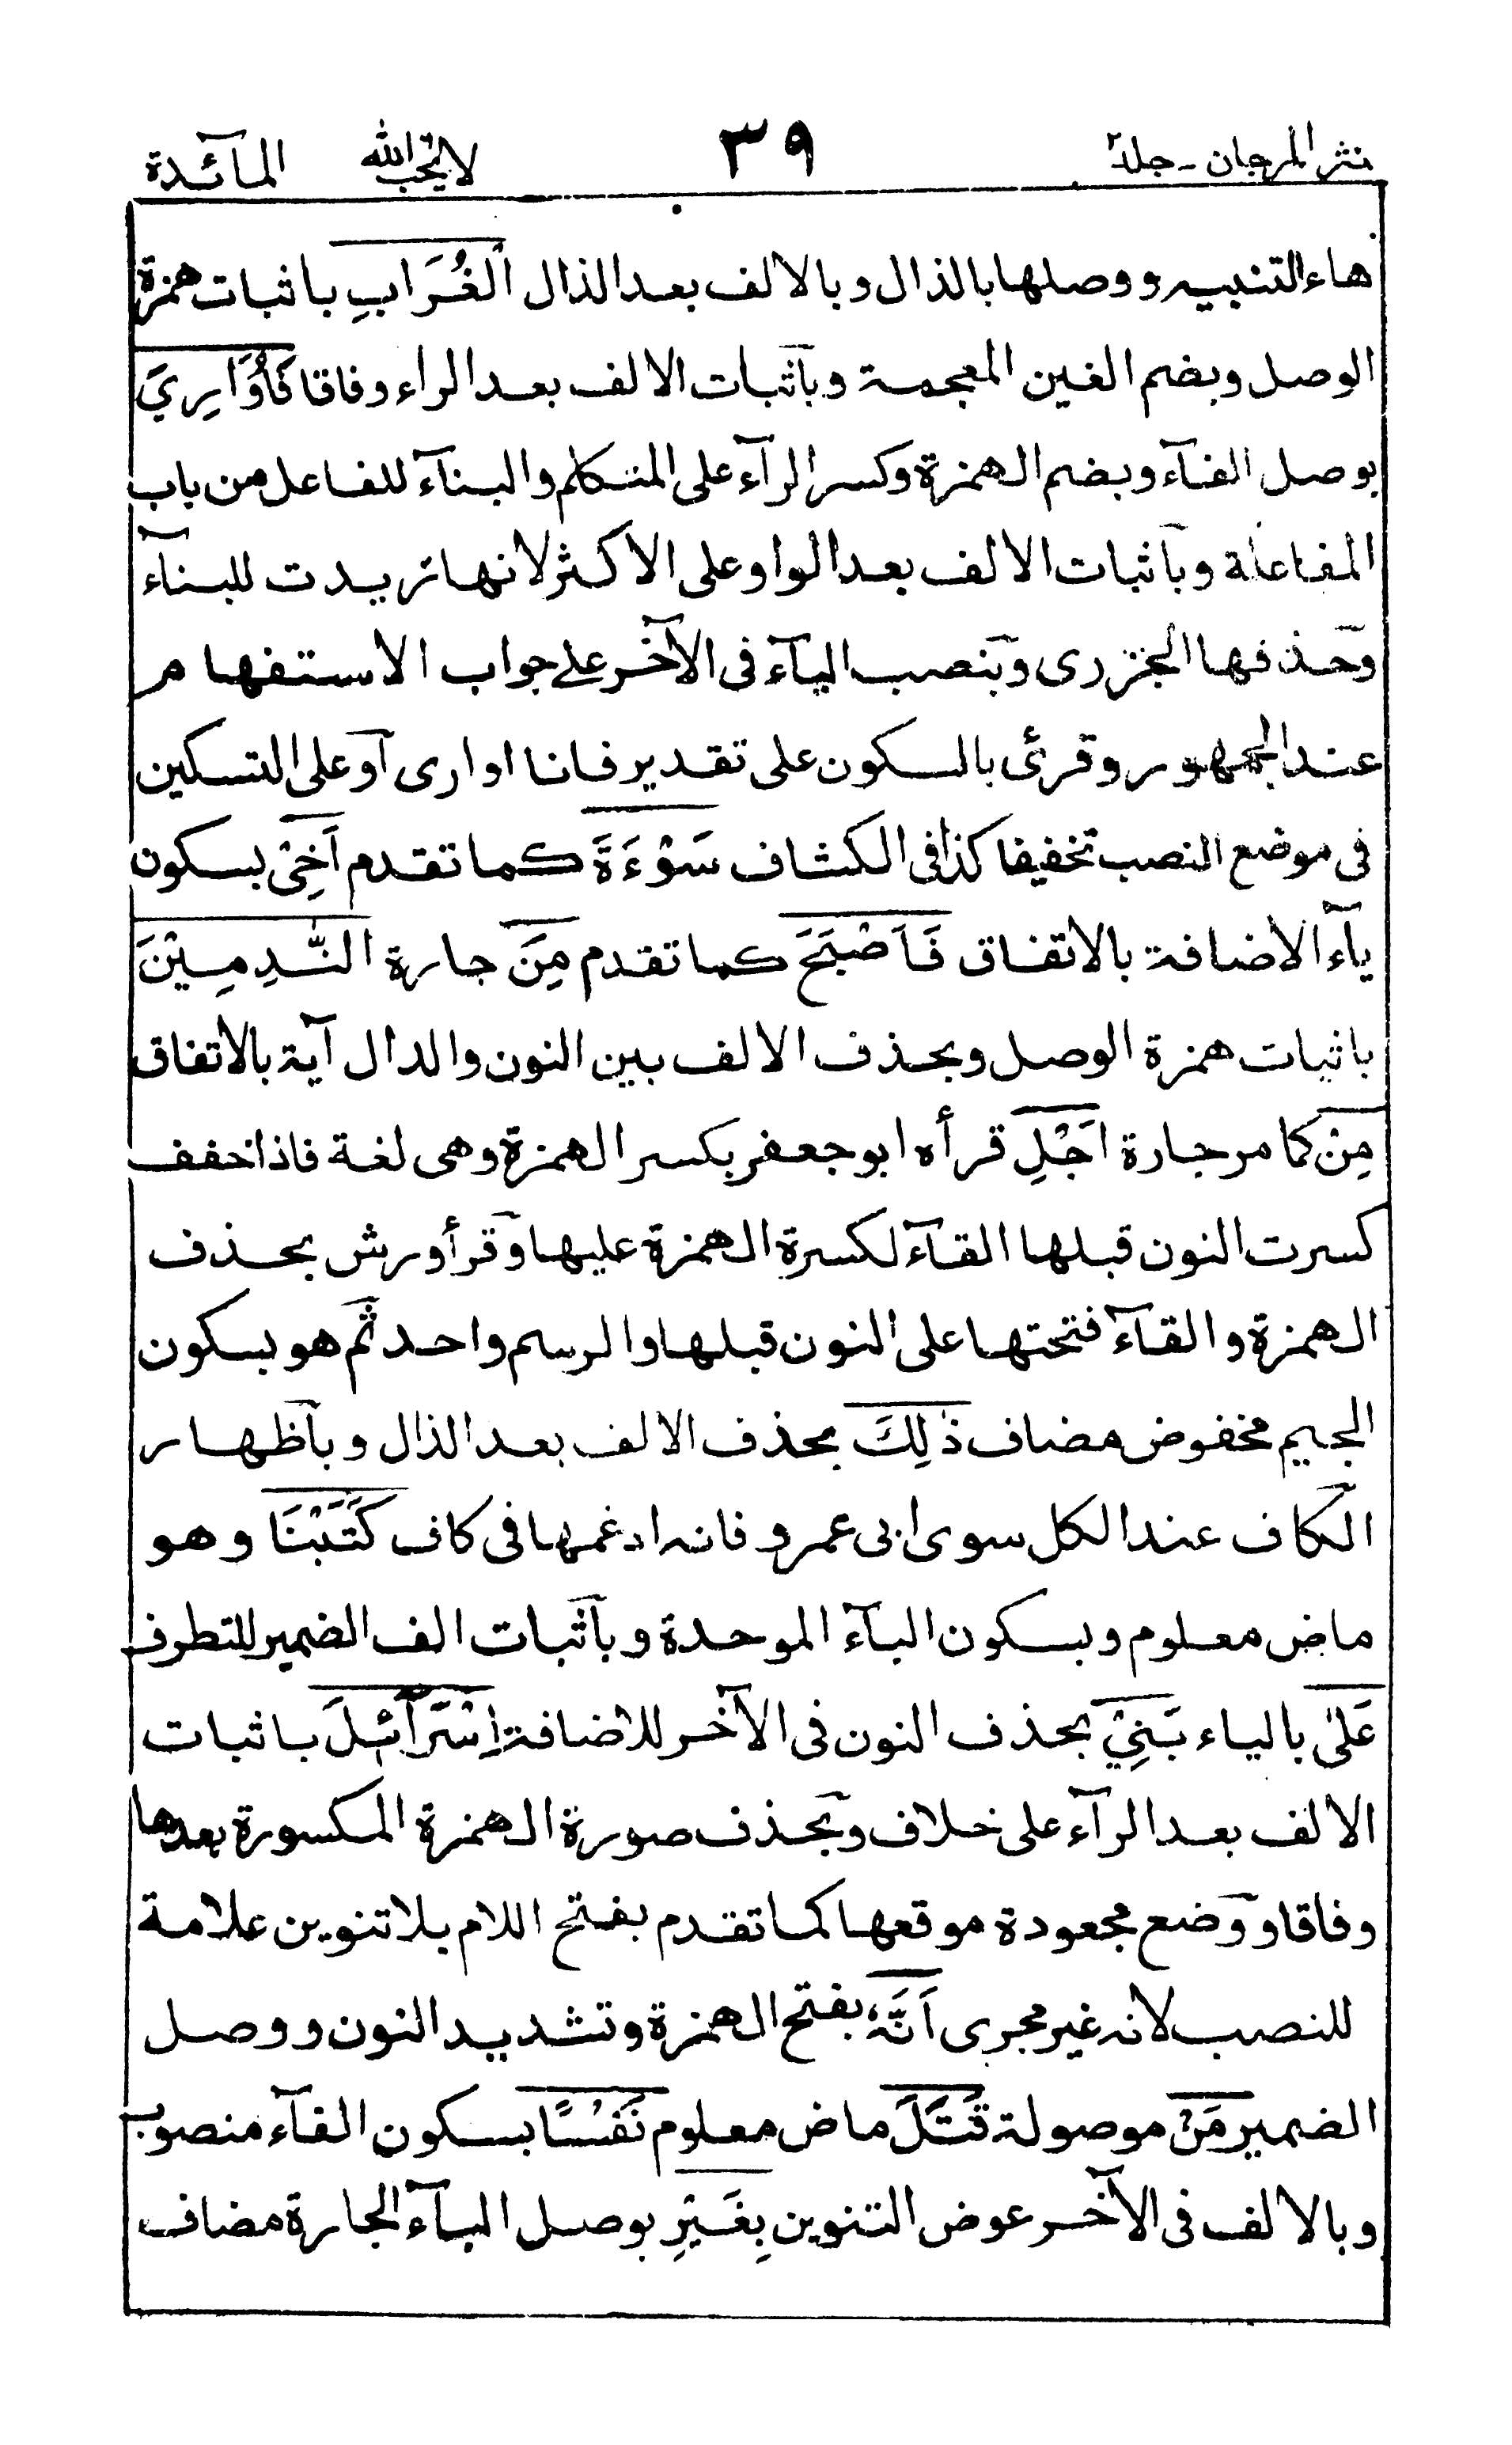 نثر المرجان - جلد٢ ٣٩ لا يحب الله المآئدة
هاء التنبيه ووصلها بالذال وبالالف بعد الذال الْغُرَابِ باثبات همزة
الوصل وبضم الغين المعجمة وبآثبات الالف بعد الراء وفاقا فَاُوَارِيَ
بوصل الفآء وبضم الهمزة وكسر الرآء على المتكلم والبنآء للفاعل من باب
المفاعلة وبآثبات الالف بعد الواو على الاكثر لانها زيدت للبنآء
وحذفها الجزرى وبنصب اليآء فى الآخر على جواب الاستفهام
عند الجمهور وقرئ بالسكون على تقدير فانا اوارى آو على التسكين
فى موضع النصب تخفيفا كذا فى الكشاف سَوْءَةَ كما تقدم اَخِىْ بسكون
يآء الاضافة بالاتفاق فَاَصْبَحَ كما تقدم مِنَ جارة النّٰدِمِيْنَ
باثبات همزة الوصل وبحذف الالف بين النون والدال آية بالاتفاق
مِنْ كما مر جارة اَجْلِ قرأه ابو جعفر بكسر الهمزة وهى لغة فاذا خفف
كسرت النون قبلها القآء لكسرة الهمزة عليها وقرأ ورش بحذف
الهمزة والقآء فتحتها على النون قبلها والرسم واحد ثم هو بسكون
الجيم مخفوض مضاف ذٰلِكَ بحذف الالف بعد الذال وبآظهار
الكاف عند الكل سوى ابى عمرو فانه ادغمها فى كاف كَتَبْنَا وهو
ماض معلوم وبسكون البآء الموحدة وبآثبات الف الضمير للتطرف
عَلٰى بالياء بَنِيْ بحذف النون فى الآخر للاضافة اِسْرَآئِلَ باثبات
الالف بعد الرآء على خلاف وبحذف صورة الهمزة المكسورة بعدها
وفاقا ووضع مجعودة موقعها كما تقدم بفتح اللام بلا تنوين علامة
للنصب لانه غير مجرى اَنَّهٗ بفتح الهمزة وتشديد النون ووصل
الضمير مَنْ موصولة قَتَلَ ماض معلوم نَفْسًا بسكون الفآء منصوب
وبالالف فى الآخر عوض التنوين بِغَيْرِ بوصل البآء الجارة مضاف